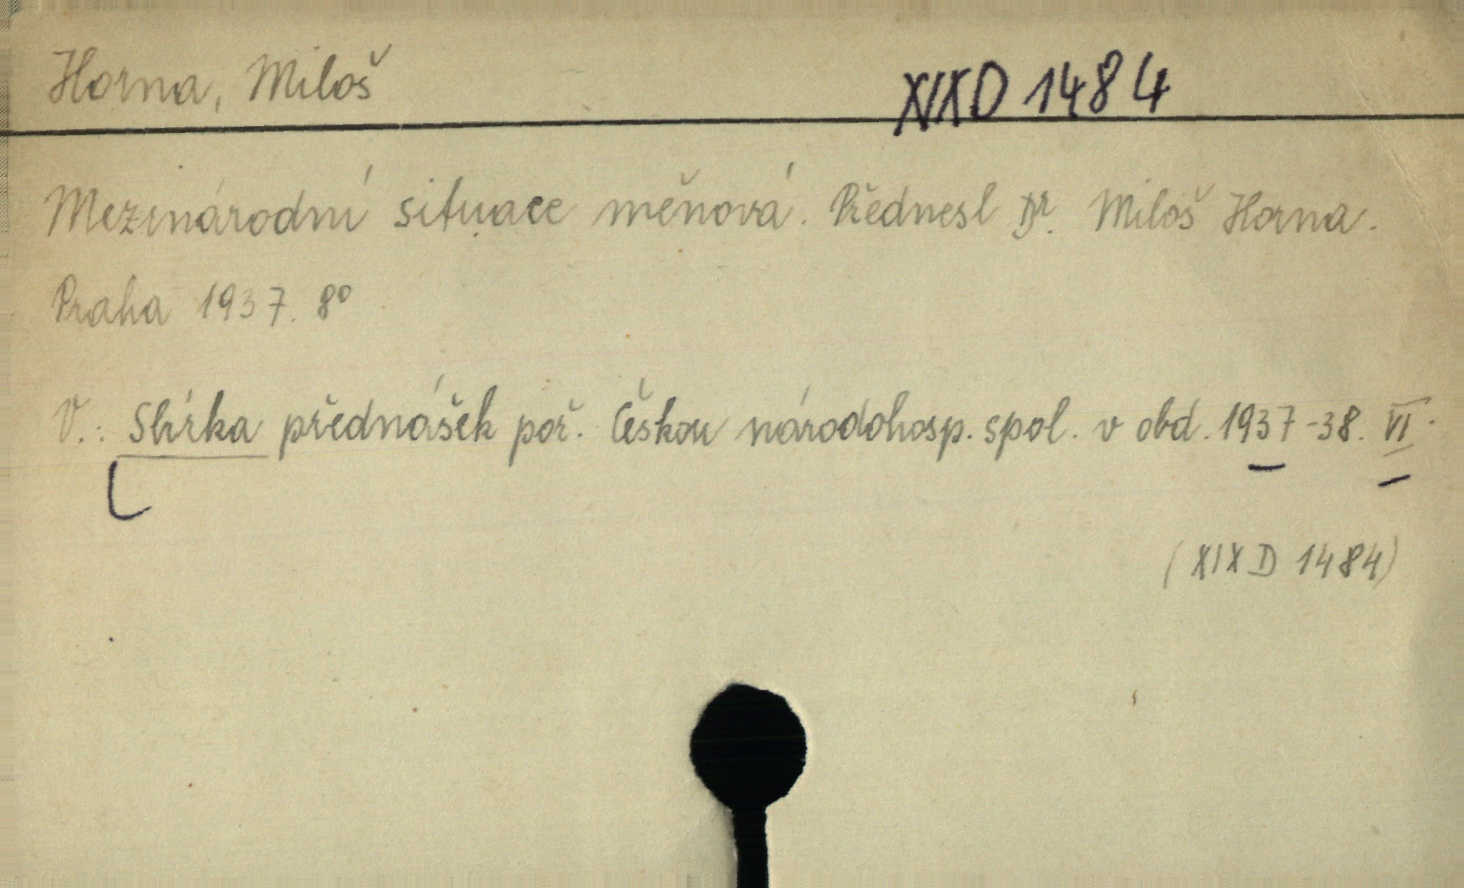 Horna, Miloš XIX D 1484
Mezinárodní situace měnová. Přednesl Dr. Miloš Horna.
Praha 1937. 8°
V.: Sbírka přednášek poř. Českou národohosp. spol. v obd. 1937-38. VI.
(XIX D 1484)